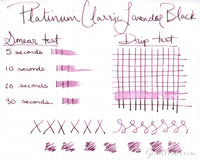 Platinum Classic Lavender Black
Smear test
Drip test
5 seconds
10 seconds
20 seconds
30 seconds
X X X X X X